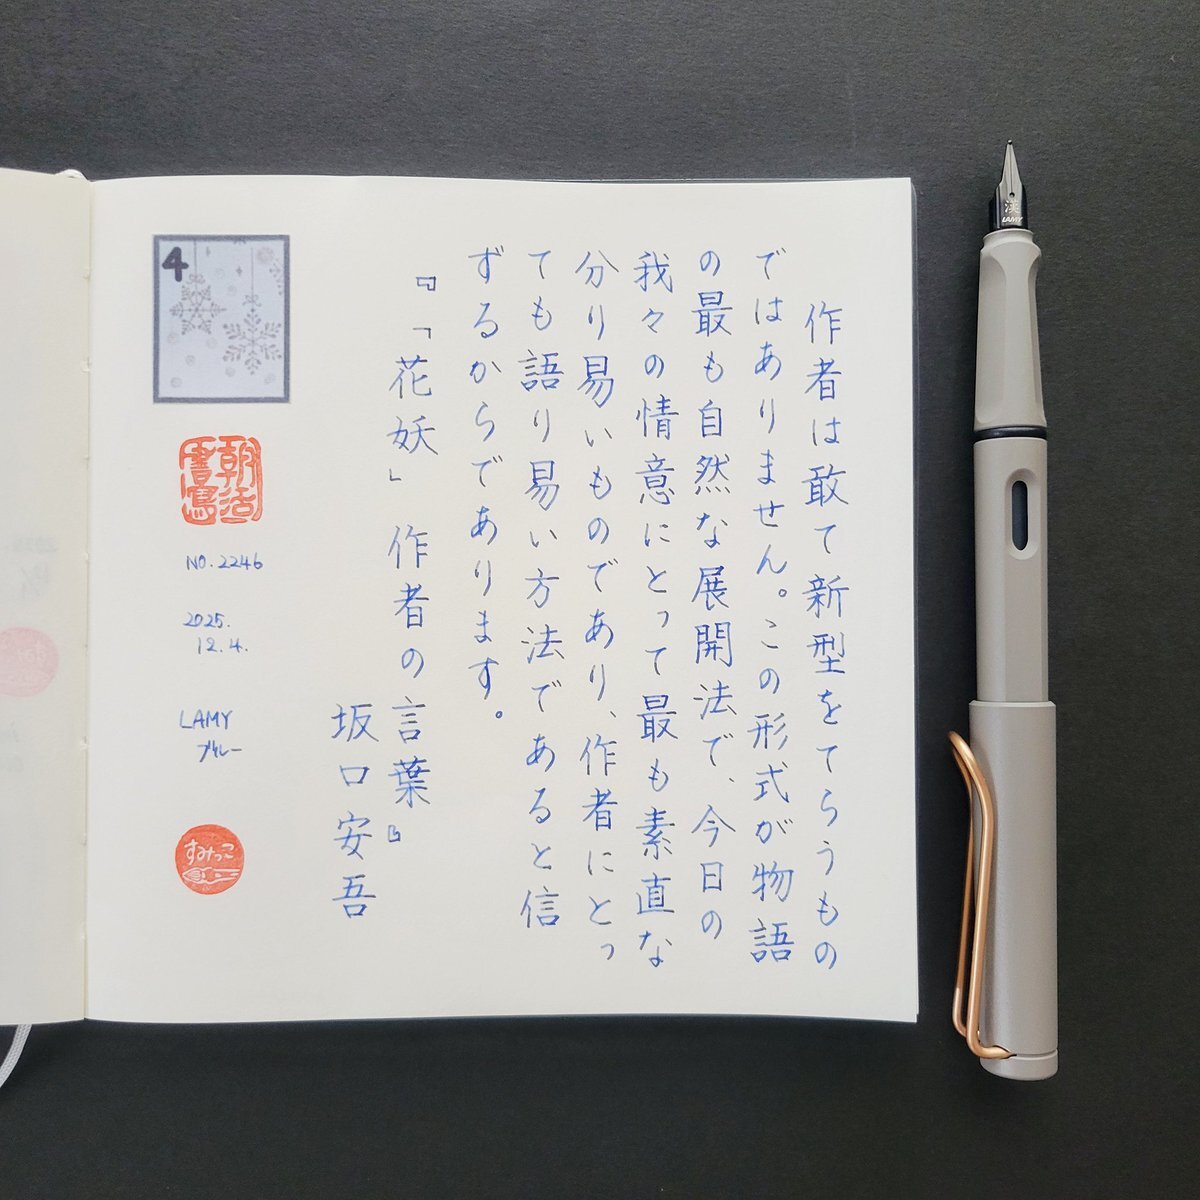 作者は敢て新型をてらうもの
ではありません。この形式が物語
の最も自然な展開法で、今日の
我々の情意にとって最も素直な
分り易いものであり、作者にとっ
ても語り易い方法であると信
ずるからであります。
『「花妖」作者の言葉』
坂口安吾
4
朝活書写
NO.2246
2025.
12.4.
LAMY
ブルー
すみっこ
漢
LAMY